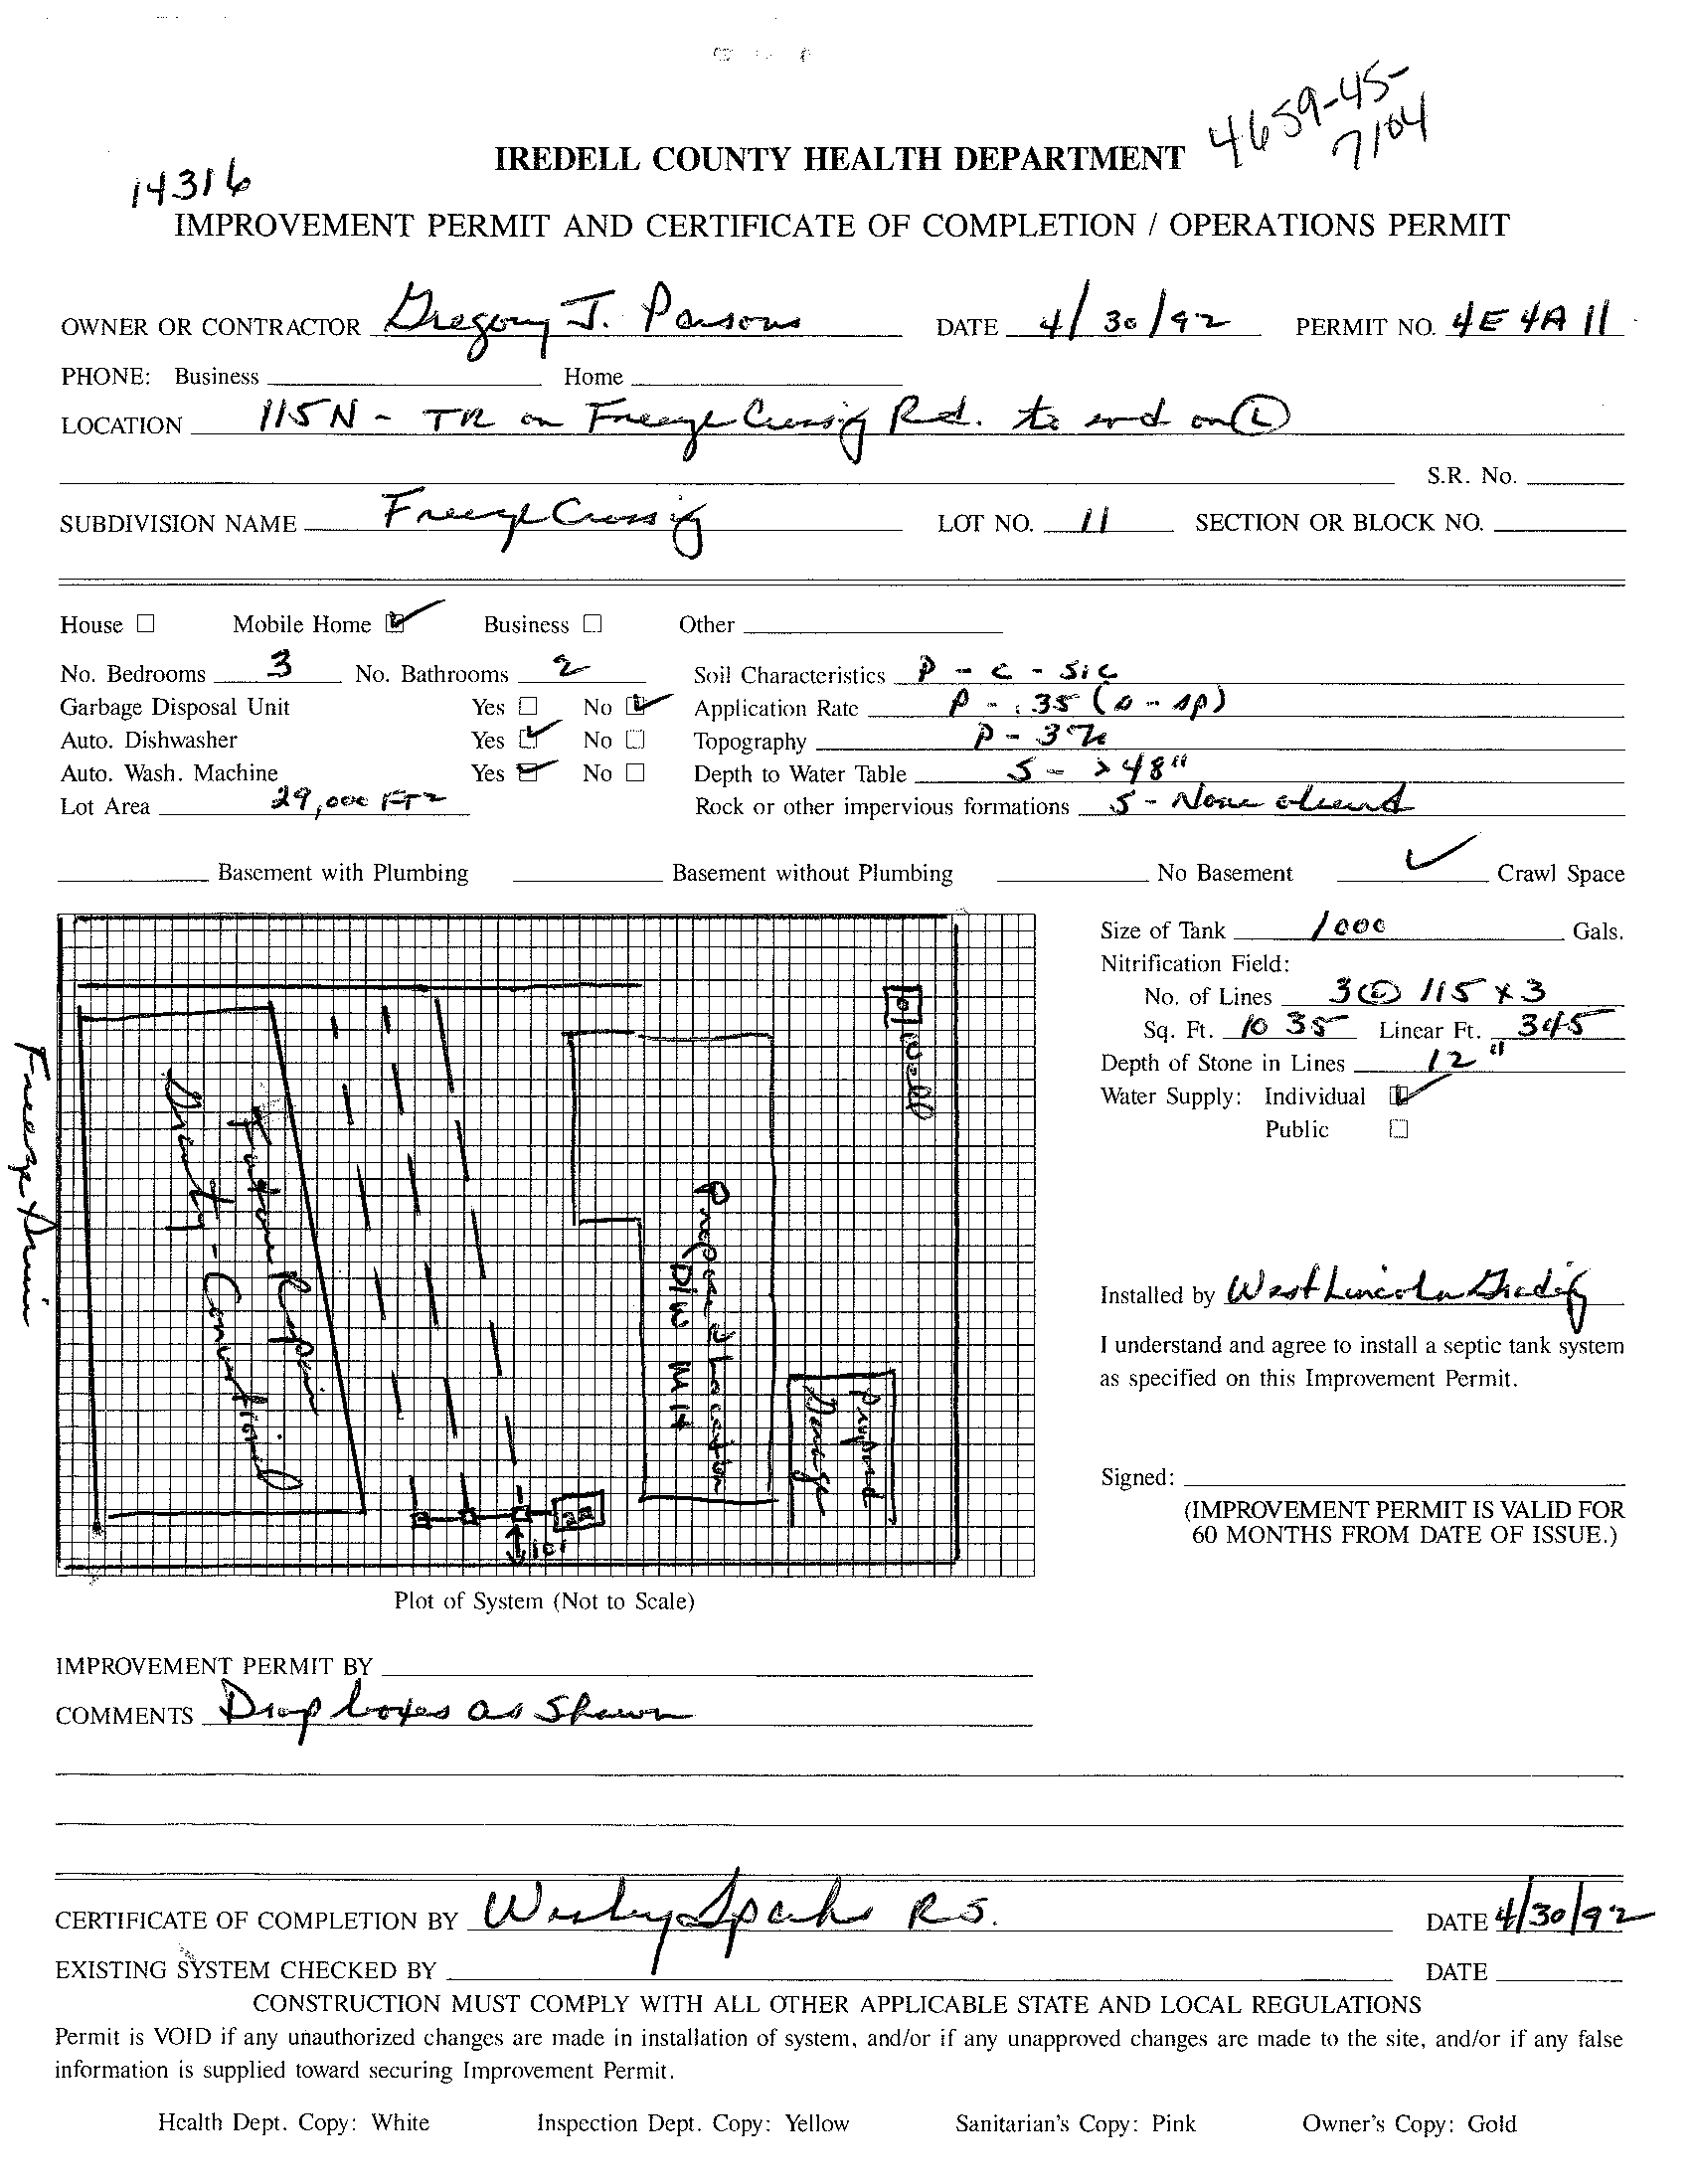 4659-45-
7104
IREDELL COUNTY HEALTH DEPARTMENT
14316
IMPROVEMENT PERMIT AND CERTIFICATE OF COMPLETION / OPERATIONS PERMIT
OWNER OR CONTRACTOR Gregory J. Parsons DATE 4/30/92 PERMIT NO. 4E4A11
PHONE: Business Home
LOCATION 115N - TR on Freeze Crossing Rd. to end on L
S.R. No.
SUBDIVISION NAME Freeze Crossing LOT NO. 11 SECTION OR BLOCK NO.
House Mobile Home Business Other
No. Bedrooms 3 No. Bathrooms 2 Soil Characteristics P - C - SiC
Garbage Disposal Unit Yes No Application Rate P - .35
Auto. Dishwasher Yes No Topography P - 3%
Auto. Wash. Machine Yes No Depth to Water Table S - > 48"
Lot Area 29,000 FT2 Rock or other impervious formations S - None
Basement with Plumbing Basement without Plumbing No Basement Crawl Space
Size of Tank 1000 Gals.
Nitrification Field:
No. of Lines 3 @ 115 x 3
Sq. Ft. 1035 Linear Ft. 345
Depth of Stone in Lines 12"
Water Supply: Individual
Public
Well
Freeze Drive
Future Repair
Gravity - Conventional
Proposed Location
D/W M.H.
Proposed
10'
Installed by West Lincoln Grading
I understand and agree to install a septic tank system
as specified on this Improvement Permit.
Signed:
(IMPROVEMENT PERMIT IS VALID FOR
60 MONTHS FROM DATE OF ISSUE.)
Plot of System (Not to Scale)
IMPROVEMENT PERMIT BY
COMMENTS Drop boxes as Shown
CERTIFICATE OF COMPLETION BY Wesley Sparks R.S. DATE 4/30/92
EXISTING SYSTEM CHECKED BY DATE
CONSTRUCTION MUST COMPLY WITH ALL OTHER APPLICABLE STATE AND LOCAL REGULATIONS
Permit is VOID if any unauthorized changes are made in installation of system, and/or if any unapproved changes are made to the site, and/or if any false
information is supplied toward securing Improvement Permit.
Health Dept. Copy: White Inspection Dept. Copy: Yellow Sanitarian's Copy: Pink Owner's Copy: Gold